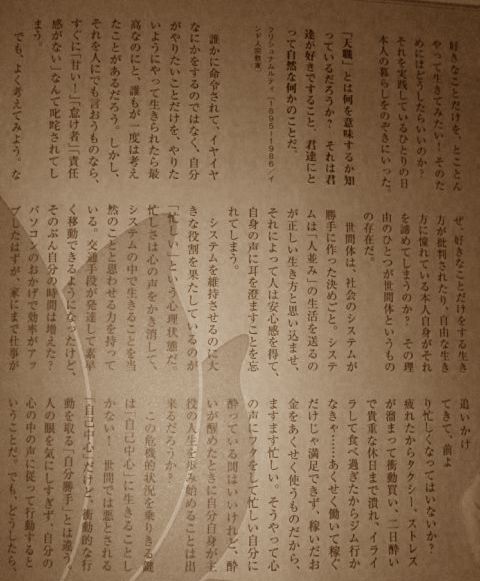 好きなことだけを、とことん
やって生きてみたい！そのた
めにはどうしたらいいのか？
それを実践しているひとりの日
本人の暮らしをのぞきにいった。
「天職」とは何を意味するか知
っているだろうか？ それは君
達が好きですること、君達にと
って自然な何かのことだ。
クリシュナムルティ（1895-1986／イ
ンド人宗教家）
誰かに命令されて、イヤイヤ
なにかをするのではなく、自分
がやりたいことだけを、やりた
いようにやって生きられたら最
高なのにと、誰もが一度は考え
たことがあるだろう。しかし、
それを人にでも言おうものなら、
すぐに「甘い！」「怠け者！」「責任
感がない」なんて叱咤されてし
まう。
でも、よく考えてみよう。な
ぜ、好きなことだけをする生き
方が批判されたり、自由な生き
方に憧れている本人自身がそれ
を諦めてしまうのか？ その理
由のひとつが世間体というもの
の存在だ。
世間体は、社会のシステムが
勝手に作った決めごと。システ
ムは「人並み」の生活を送るの
が正しい生き方と思い込ませ、
それによって人は安心感を得て、
自身の声に耳を澄ますことを忘
れてしまう。
システムを維持させるのに大
きな役割を果たしているのが
「忙しい」という心理状態だ。
忙しさは心の声をかき消して、
システムの中で生きることを当
然のことと思わせる力を持って
いる。交通手段が発達して素早
く移動できるようになったけど、
そのぶん自分の時間は増えた？
パソコンのおかげで効率がアッ
プしたはずが、家にまで仕事が
追いかけ
てきて、前よ
り忙しくなってはいないか？
疲れたからタクシー、ストレス
が溜まって衝動買い、二日酔い
で貴重な休日まで潰れ、イライ
ラして食べ過ぎたからジム行か
なきゃ……あくせく働いて稼ぐ
だけじゃ満足できず、稼いだお
金をあくせく使うものだから、
ますます忙しい。そうやって心
の声にフタをして忙しい自分に
酔っている間はいいけれど、酔
いが醒めたときに自分自身が主
役の人生を歩み始めることは出
来るだろうか？
この危機的状況を乗りきる鍵
は「自己中心」に生きることし
かない！ 世間では悪とされる
「自己中心」だけど、衝動的な行
動を取る「自分勝手」とは違う。
人の眼を気にしすぎず、自分の
心の中の声に従って行動すると
いうことだ。でも、どうしたら、